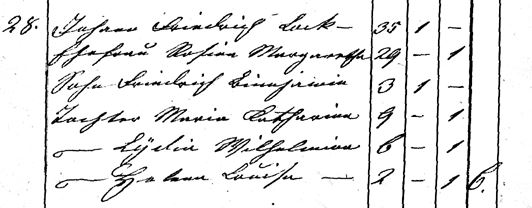 28. Johann Friedrich Lock – 35 1 –
Ehefrau Rosina Margaretha 29 – 1
Sohn Friedrich Benjamin 3 1 –
Tochter Maria Catharina 9 – 1
— Lydia Wilhelmina 6 – 1
— Helena Louisa — 2 – 1 6.